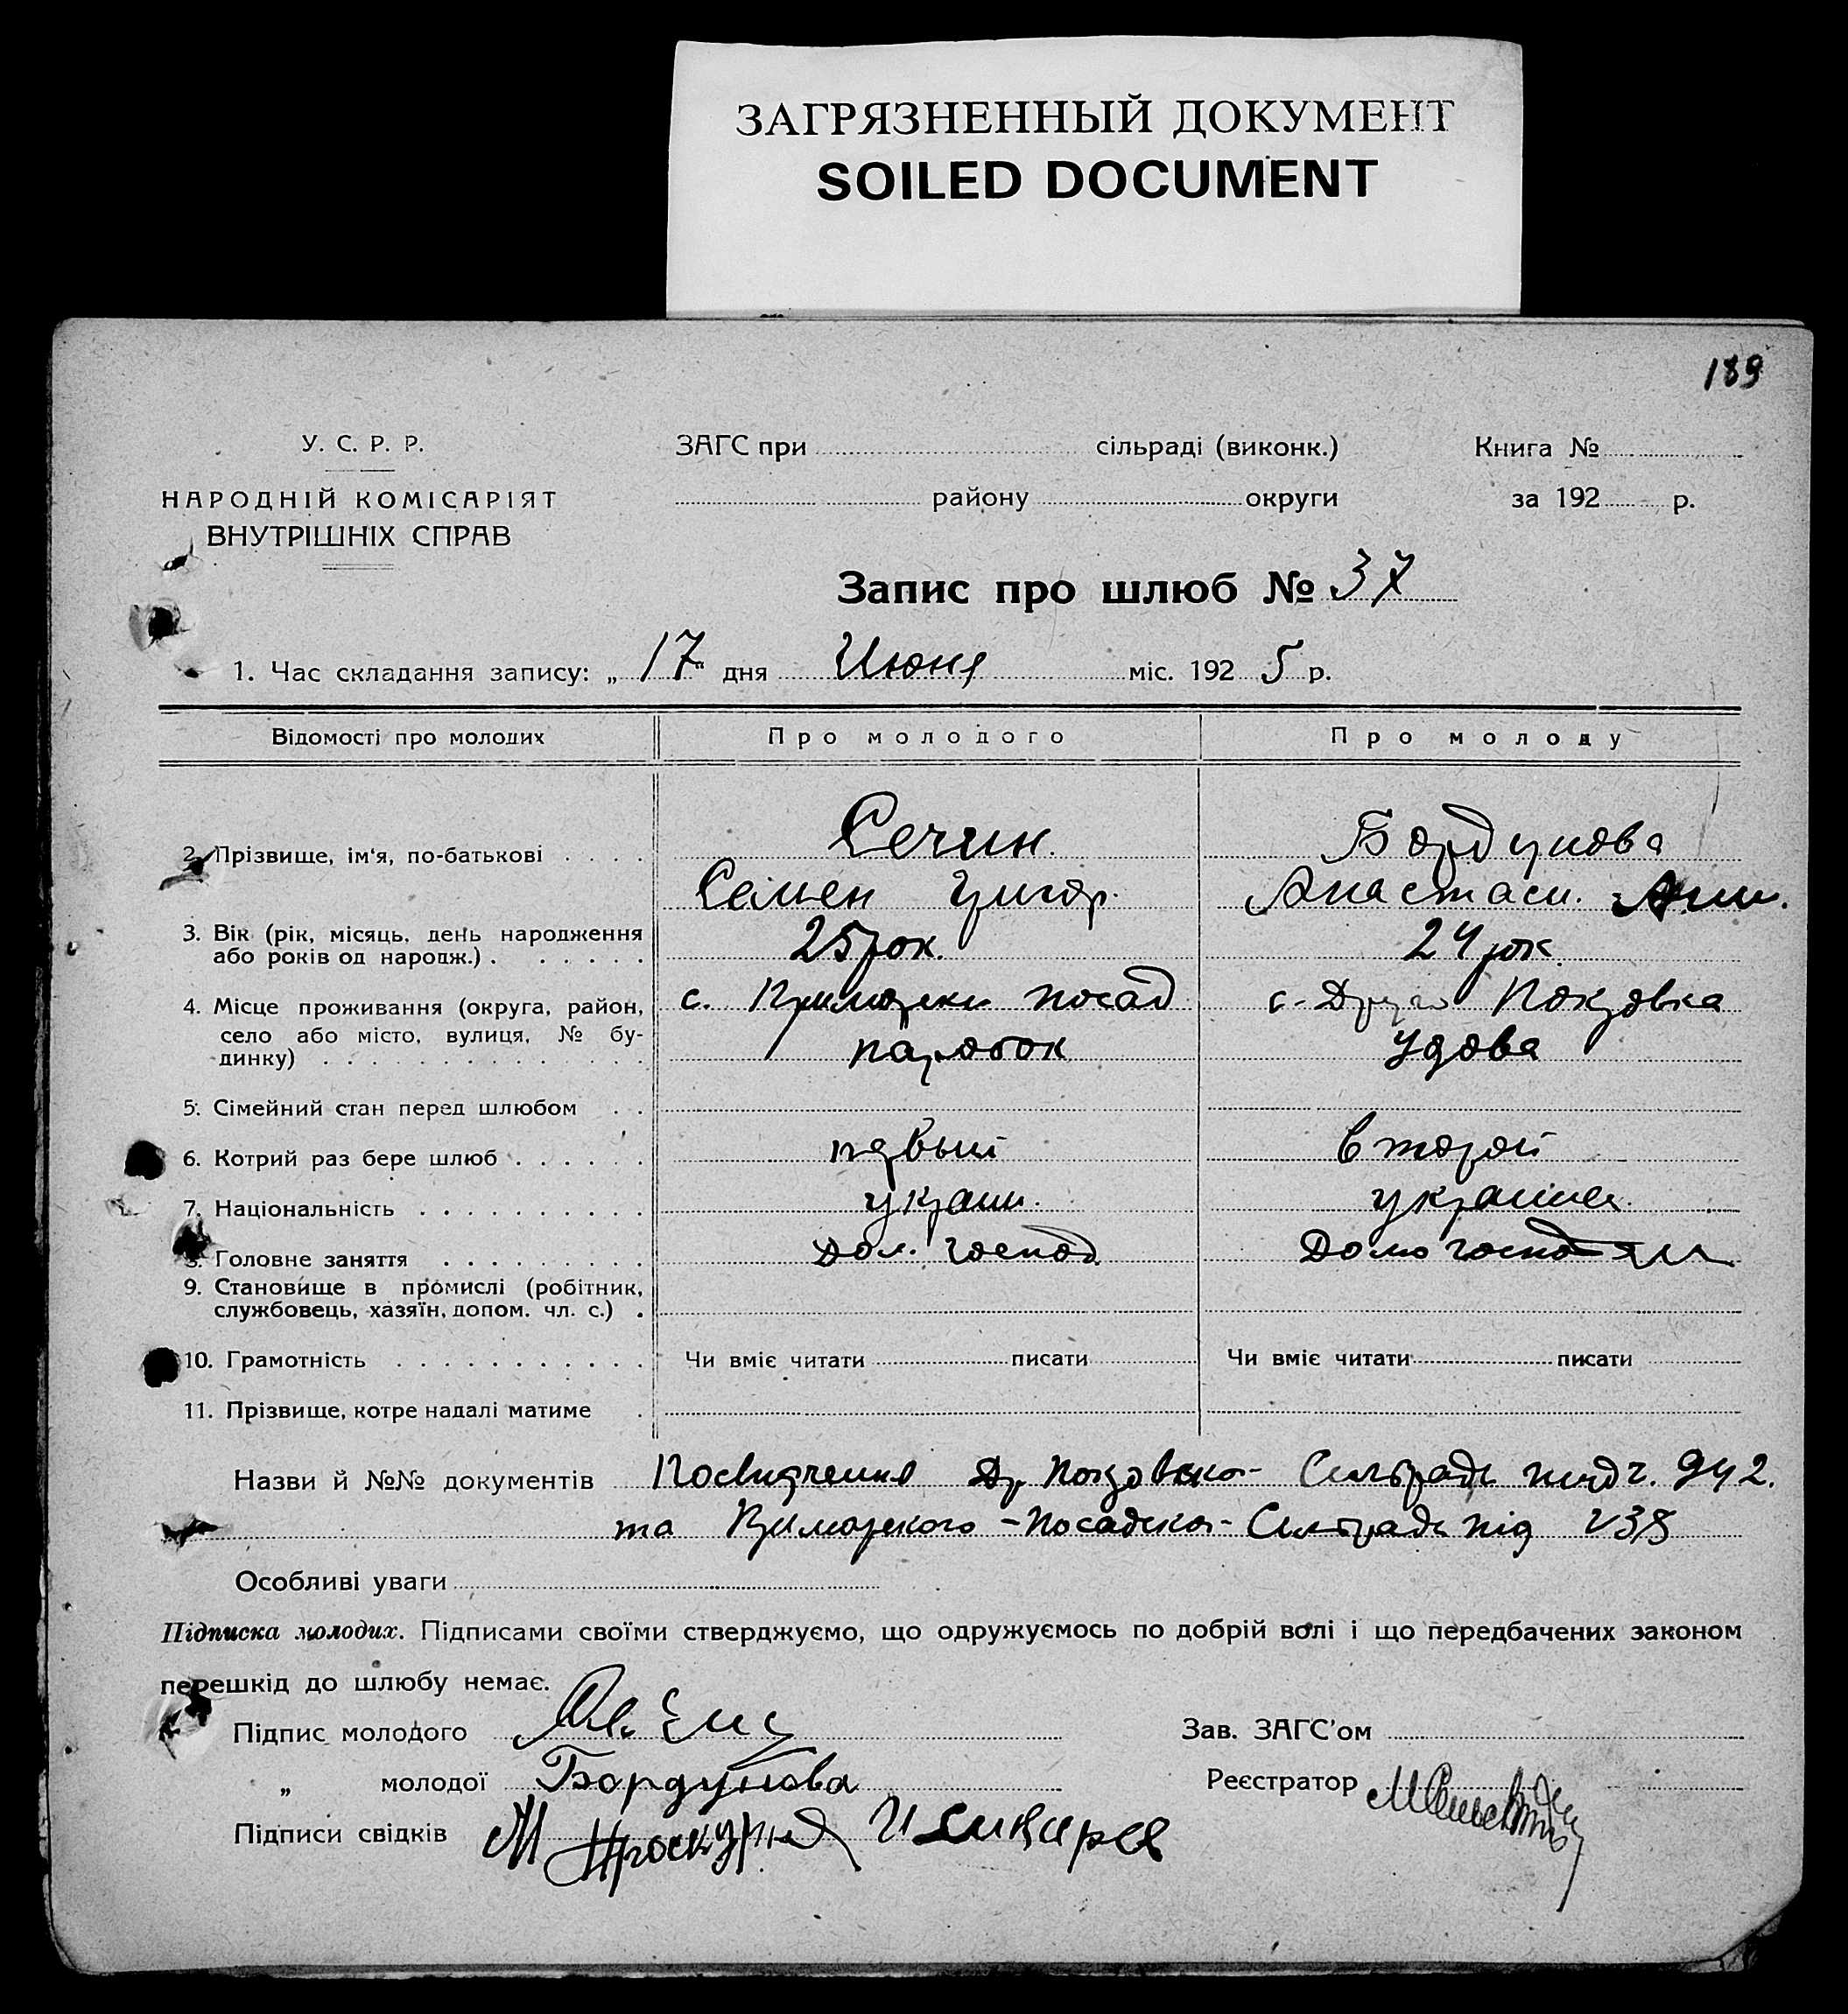 ЗАГРЯЗНЕННЫЙ ДОКУМЕНТ
SOILED DOCUMENT
189
У. С. Р. Р.
НАРОДНІЙ КОМІСАРІЯТ
ВНУТРІШНІХ СПРАВ
ЗАГС при сільраді (виконк.)
району округи
Книга №
за 192 р.
Запис про шлюб № 37
1. Час складання запису: „17" дня Июня міс. 1925 р.
Відомості про молодих Про молодого Про молоду
2. Прізвище, ім'я, по-батькові . . . . Сечин. Бордунова
Семен Григор. Анастаси.
3. Вік (рік, місяць, день народження
або років од народж.) . . . . . . 25 рок. 24 рок.
4. Місце проживання (округа, район,
село або місто, вулиця, № бу-
динку) . . . . . . . . . . . .
с. Приморски посад с. Друга Покровка
парубок удова
5. Сімейний стан перед шлюбом . .
6. Котрий раз бере шлюб . . . . . . первый второй
7. Національність . . . . . . . . . . украин. украинка.
8. Головне заняття . . . . . . . . . Дом. господ. Домогосподар
9. Становище в промислі (робітник,
службовець, хазяїн, допом. чл. с.) .
10. Грамотність . . . . . . . . . . . Чи вміє читати писати Чи вміє читати писати
11. Прізвище, котре надалі матиме .
Назви й №№ документів Посвидчення Др. Покровско- Сильради пид ч. 942.
та Приморского-Посадско- Сильради під 238
Особливі уваги
Підписка молодих. Підписами своїми стверджуємо, що одружуємось по добрій волі і що передбачених законом
перешкід до шлюбу немає.
Підпис молодого
Зав. ЗАГС'ом
„ молодої Бордунова
Реєстратор
Підписи свідків М Проскурня